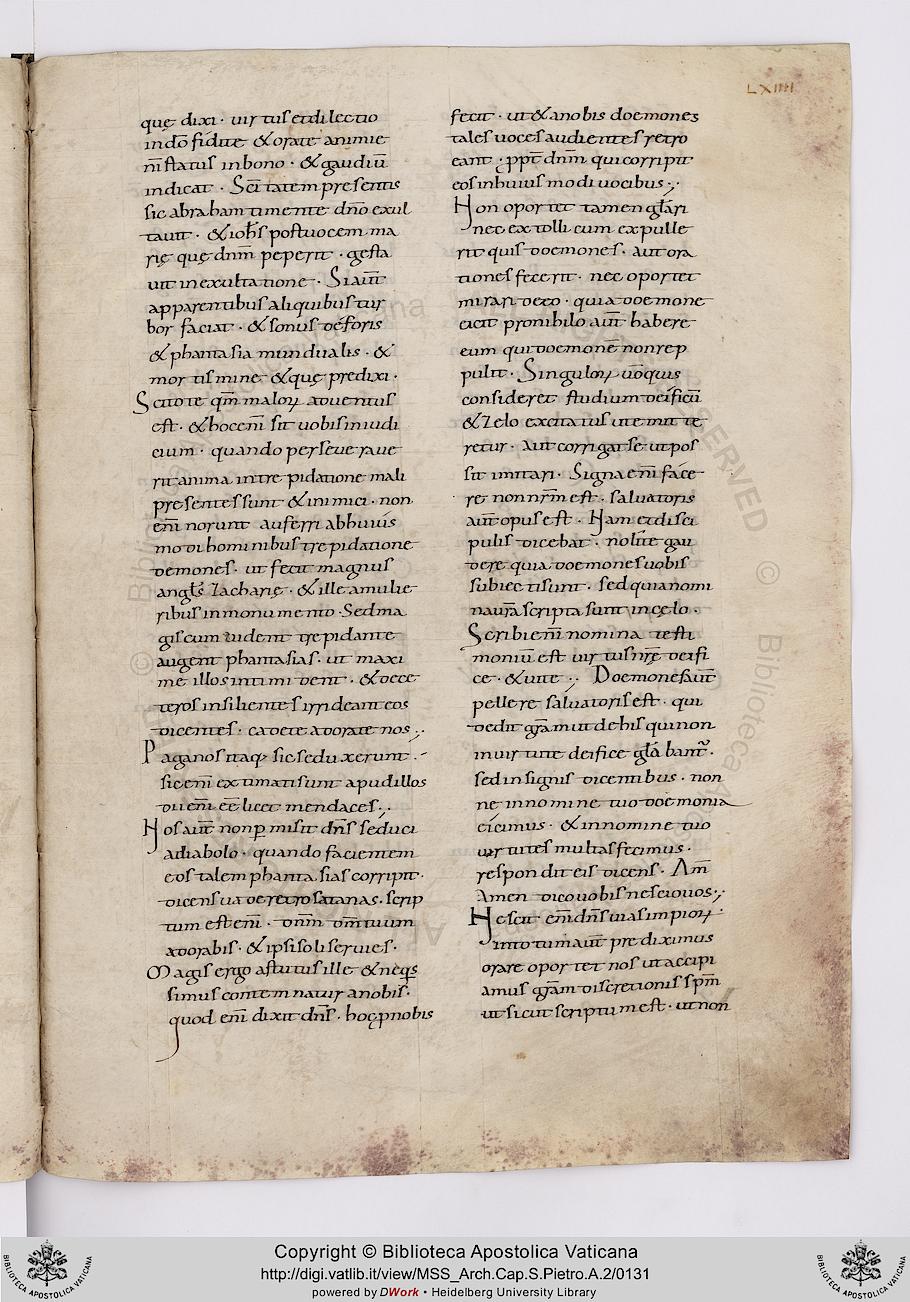 LXIIII
quę dixi · uirtus et dilectio
in dō fidite & orate animie
nī status in bono · & gaudiū
indicat · Sci tatem presentis
sic abraham timente dn̄o exul
tauit · & ioh̄s post uocem ma
rię quę dn̄m peperit · gesta
uit in exultatione · Si aūt
apparentibus aliquibus tur
bor faciat · & sonus deforis
& phantasia mundualis · &
mortis mine & quę predixi ·
Scitote qm̄ maloꝝ aduentus
est · & hoc enī sit uobis in iudi
cium · quando perseueraue
rit anima in trepidatione mali
presentes sunt & inimici · non
enī norunt auferri ab huius
modi hominibus trepidatione
demones · ut fecit magnus
angl̄s Zacharię · & ille amulie
ribus in monumento · Sed ma
gis cum uident trepidante
augent phantasias · ut maxi
me illos intimident · & dece
teros insilientes irrideant eos
dicentes · cadete adorate nos ;
Paganos itaq; sic seduxerunt ·
sic enī extimati sunt apud illos
dii enī eē licet mendaces ;
Hos aūt non ꝑmisit dn̄s seduci
a diabolo · quando facientem
eos talem phantasias corripit ·
dicens uade retro satanas · scrip
tum est enī · dn̄m dm̄ tuum
adorabis · & ipsi soli seruies ·
Magis ergo astutus ille & neqs
simus contemnatur a nobis ·
quod enī dixit dn̄s · hoc ꝓ nobis
fecit · ut & a nobis doemones
tales uoces audientes retro
eant · ppt dn̄m qui corripit
eos in huiusmodi uocibus ;
Non oportet tamen glari
nec extolli cum expulle
rit quis doemones · aut ora
tiones fecerit · nec oportet
mirari deeo · quia doemone
eicit pro nihilo aūt habere
eum qui doemonē non rep
pulit · Singuloꝝ uōquis
consideret studium deificū
& Zelo excitatus ut emitte
retur · aut corrigat se ut pos
sit imitari · Signa enī face
re non nr̄m est · saluatoris
aūt opus est · Nam et disci
pulis dicebat · nolite gau
dere quia doemones uobis
subiecti sunt · sed quia nomi
na ur̄a scripta sunt in cęlo ·
Scribi enī nomina testi
moniū est uirtus nrē deifi
ce · & uite ; Doemones aūt
pellere saluatoris est · qui
dedit gr̄a m ut de his qui non
in uirtute deifice gla bant̄ ·
sed in signis dicentibus · non
ne in nomine tuo doemonia
eicimus · & in nomine tuo
uirtutes multas fecimus ·
respondit eis dicens · Am̄
Amen dico uobis nescio uos ;
Nescit enī dn̄s uias impioꝝ ·
in totum aūt prediximus
orare oportet nos ut accipi
amus gr̄am discretionis spm̄
ut sicut scriptum est · ut non
Copyright © Biblioteca Apostolica Vaticana
http://digi.vatlib.it/view/MSS_Arch.Cap.S.Pietro.A.2/0131
powered by DWork • Heidelberg University Library
BIBLIOTECA APOSTOLICA VATICANA
BIBLIOTECA APOSTOLICA VATICANA